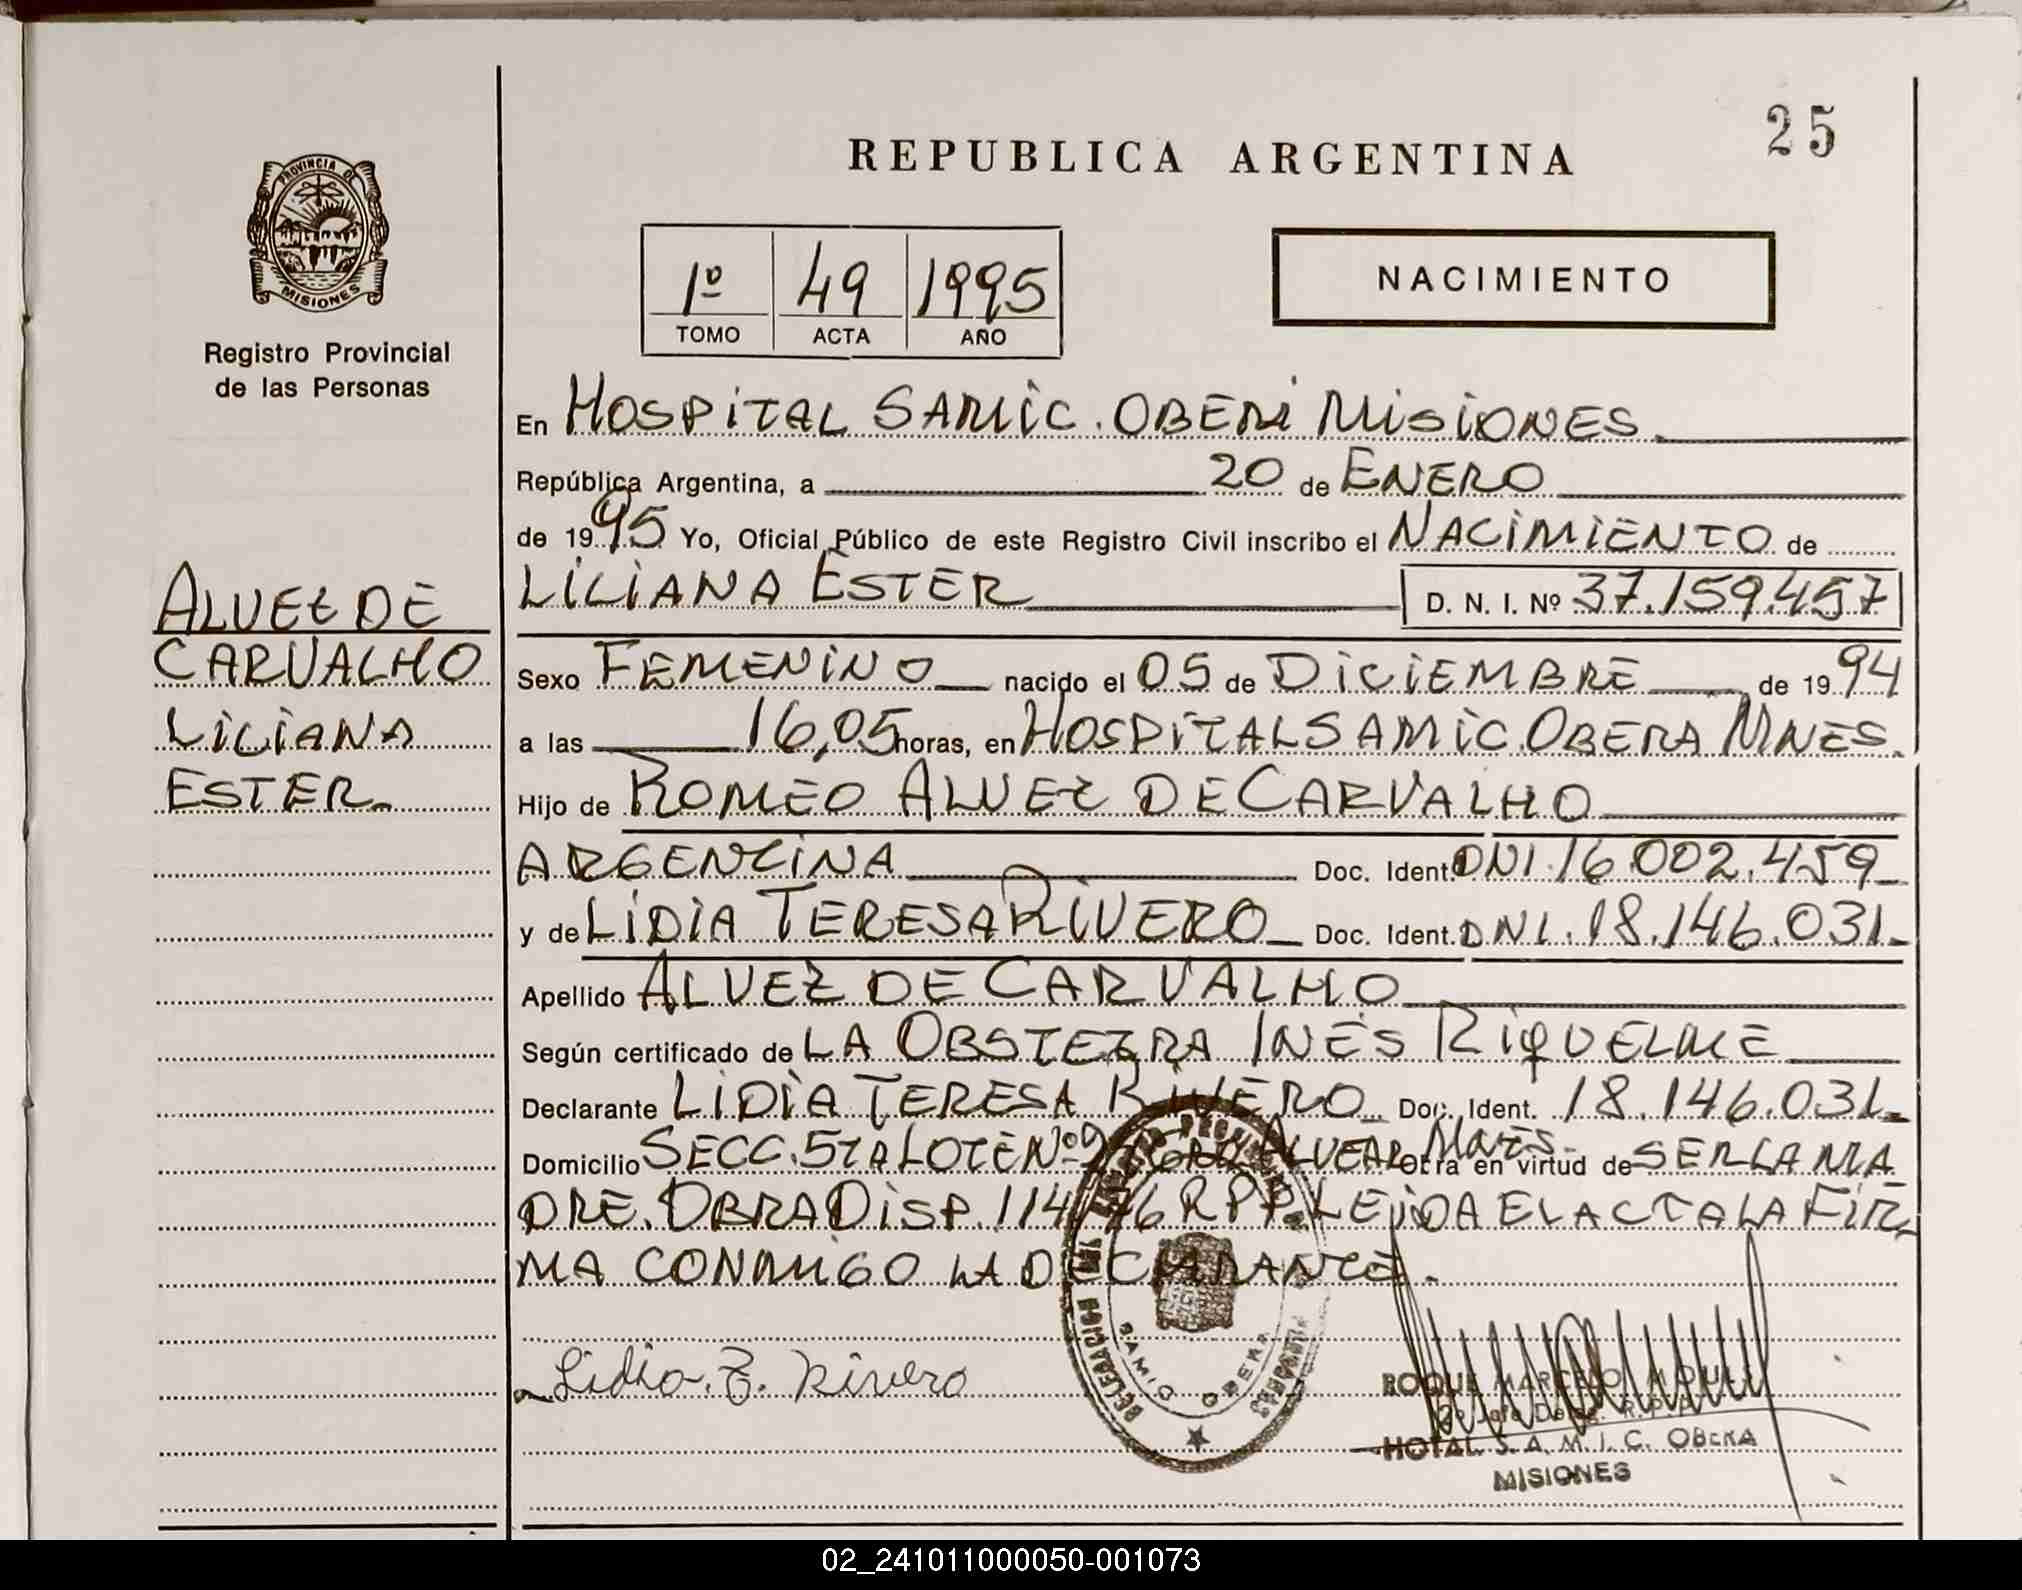 25
REPUBLICA ARGENTINA
PROVINCIA DE
MISIONES
Registro Provincial
de las Personas
1º 49 1995
TOMO ACTA AÑO
NACIMIENTO
En HOSPITAL SAMIC. OBERA MISIONES
República Argentina, a 20 de ENERO
de 1995 Yo, Oficial Público de este Registro Civil inscribo el NACIMIENTO de
LILIANA ESTER D. N. I. Nº 37.159.457
ALVEZ DE
CARVALHO
LILIANA
ESTER
Sexo FEMENINO nacido el 05 de DICIEMBRE de 1994
a las 16,05 horas, en HOSPITAL SAMIC. OBERA MNES.
Hijo de ROMEO ALVEZ DE CARVALHO
ARGENTINA Doc. Ident. DNI. 16.002.459
y de LIDIA TERESA RIVERO Doc. Ident. DNI. 18.146.031
Apellido ALVEZ DE CARVALHO
Según certificado de LA OBSTETRA INES RIQUELME
Declarante LIDIA TERESA RIVERO Doc. Ident. 18.146.031
Domicilio SECC. 5TA LOTE Nº ALVEAR Mnes. Obra en virtud de SER LA MA
DRE. OBRA DISP. 114/76 RPP. LEIDA EL ACTA LA FIR
MA CONMIGO LA DECLARANTE.
Lidia. T. Rivero
DELEGACION
SAMIC OBERA
ROQUE MARCELO
R.P.P.
HOTAL S. A. M. I. C. OBERA
MISIONES
02_241011000050-001073